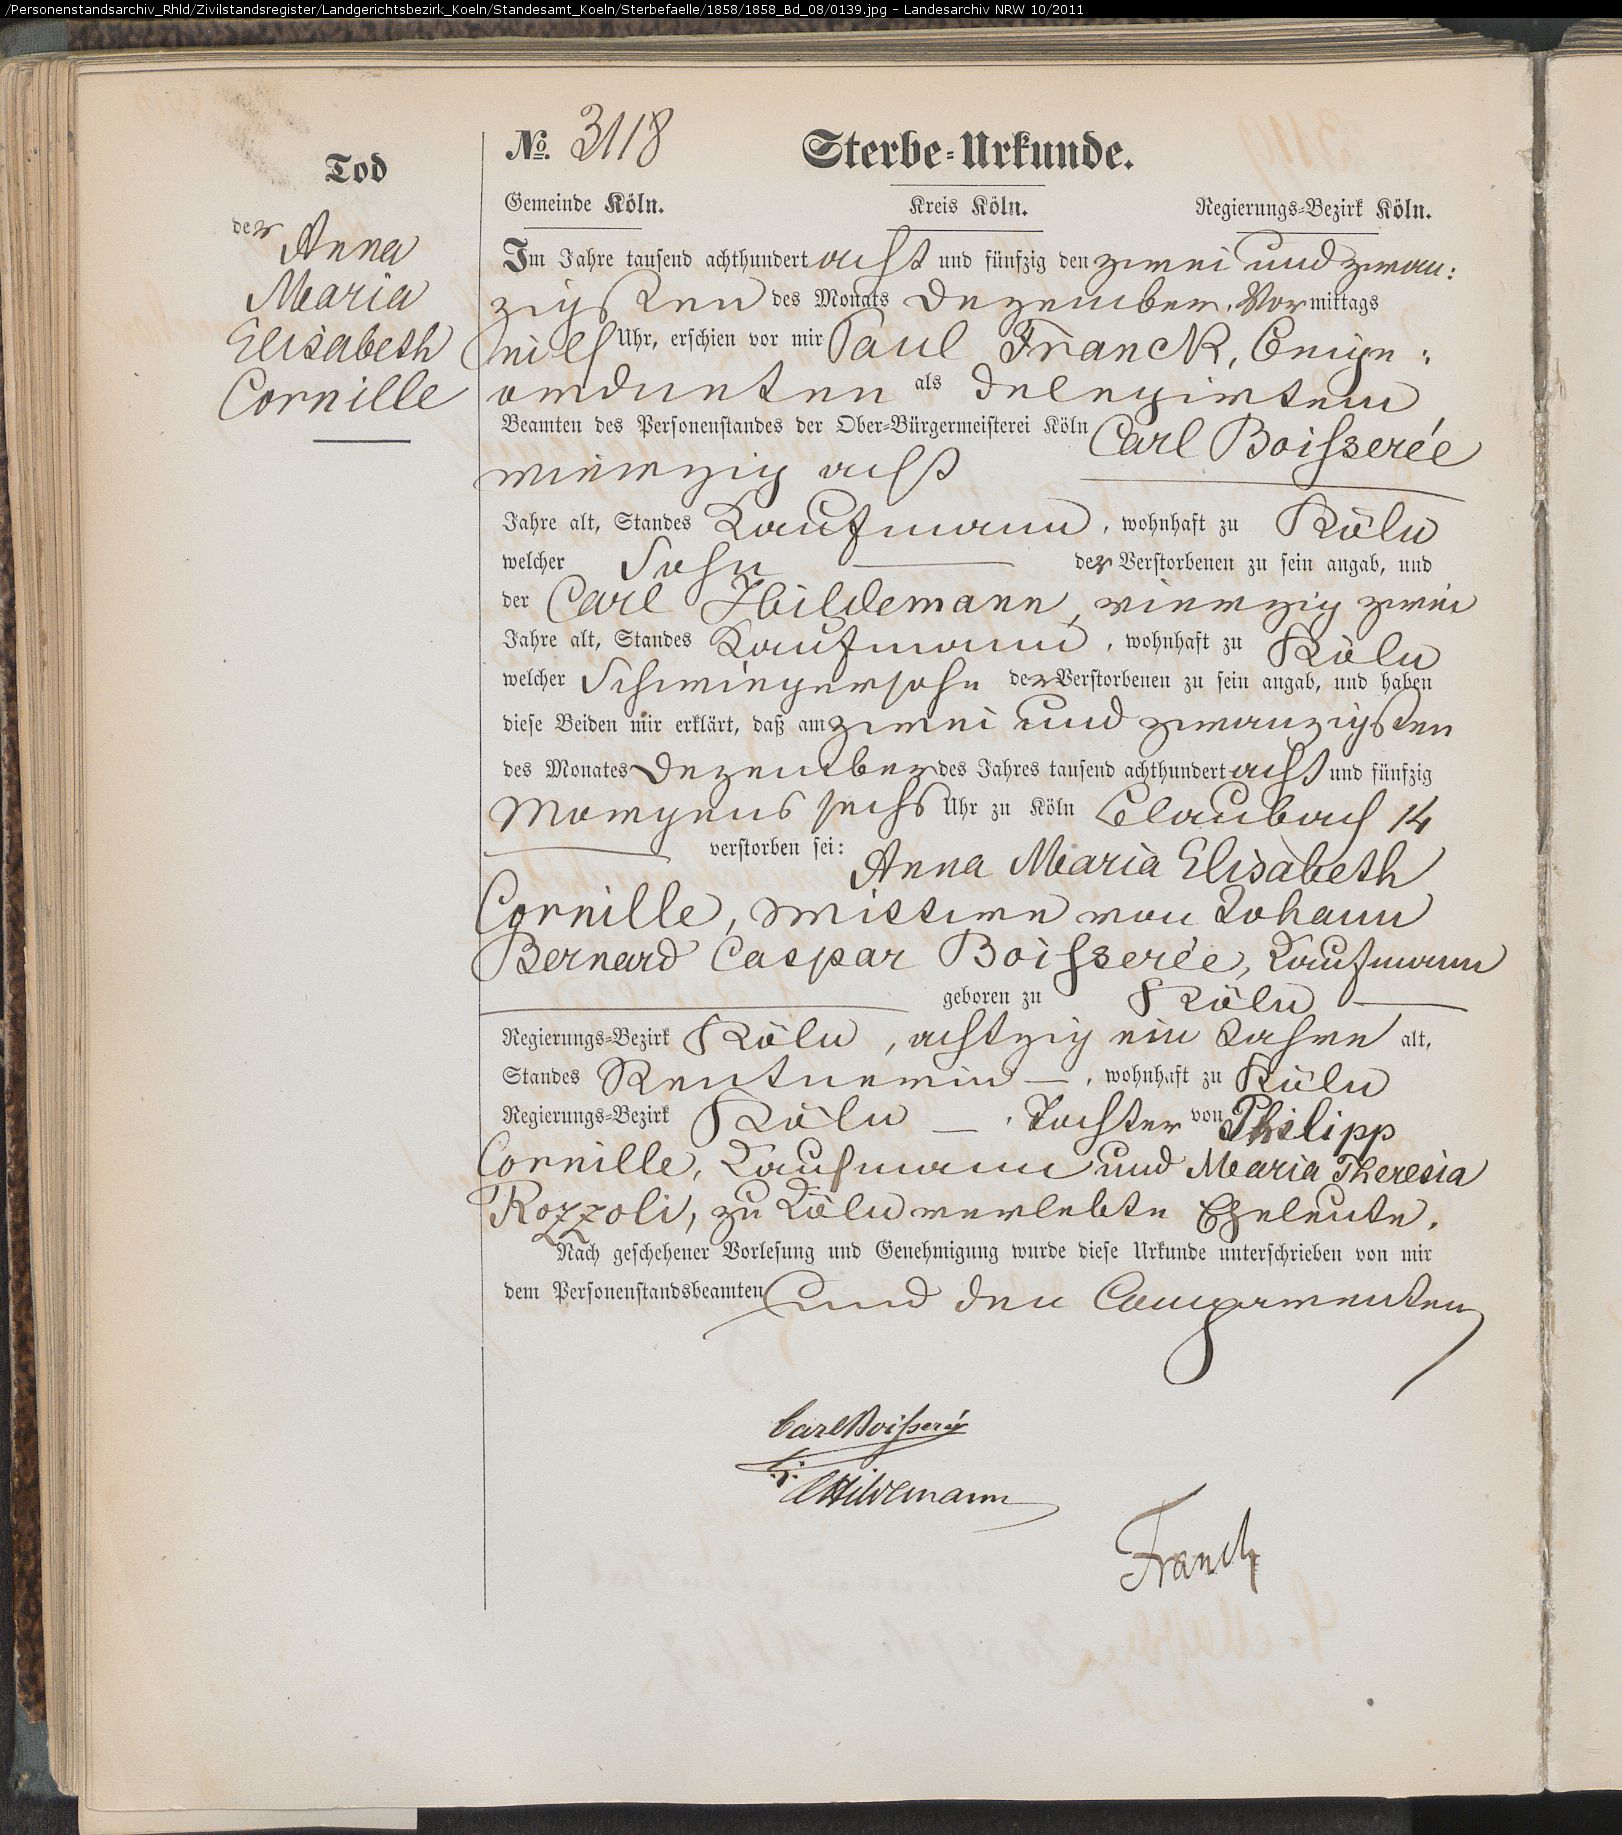 /Personenstandsarchiv_Rhld/Zivilstandsregister/Landgerichtsbezirk_Koeln/Standesamt_Koeln/Sterbefaelle/1858/1858_Bd_08/0139.jpg - Landesarchiv NRW 10/2011
Tod
der Anna
Maria
Elisabeth
Cornille
No. 3118 Sterbe-Urkunde.
Gemeinde Köln. Kreis Köln. Regierungs-Bezirk Köln.
Im Jahre tausend achthundert acht und fünfzig den zwei und zwan:
zigsten des Monats Dezember, Vormittags
elf Uhr, erschien vor mir Paul Franck, Beige:
ordneten als delegirtem
Beamten des Personenstandes der Ober-Bürgermeisterei Köln Carl Boisserée
vierzig acht
Jahre alt, Standes Kaufmann, wohnhaft zu Köln
welcher Sohn der Verstorbenen zu sein angab, und
der Carl Hildemann, vierzig zwei
Jahre alt, Standes Kaufmann, wohnhaft zu Köln
welcher Schwiegersohn der Verstorbenen zu sein angab, und haben
diese Beiden mir erklärt, daß am zwei und zwanzigsten
des Monates Dezember des Jahres tausend achthundert acht und fünfzig
Morgens sechs Uhr zu Köln Blaubach 14
verstorben sei: Anna Maria Elisabeth
Cornille, Wittwe von Johann
Bernard Caspar Boisserée, Kaufmann
geboren zu Köln
Regierungs-Bezirk Köln, achtzig ein Jahre alt,
Standes Rentnerin —, wohnhaft zu Köln
Regierungs-Bezirk Köln —, Tochter von Philipp
Cornille, Kaufmann und Maria Theresia
Rozzoli, zu Köln verlebte Eheleute.
Nach geschehener Vorlesung und Genehmigung wurde diese Urkunde unterschrieben von mir
dem Personenstandsbeamten und den Comparenten
Carl Boisserée
C Hildemann
Franck